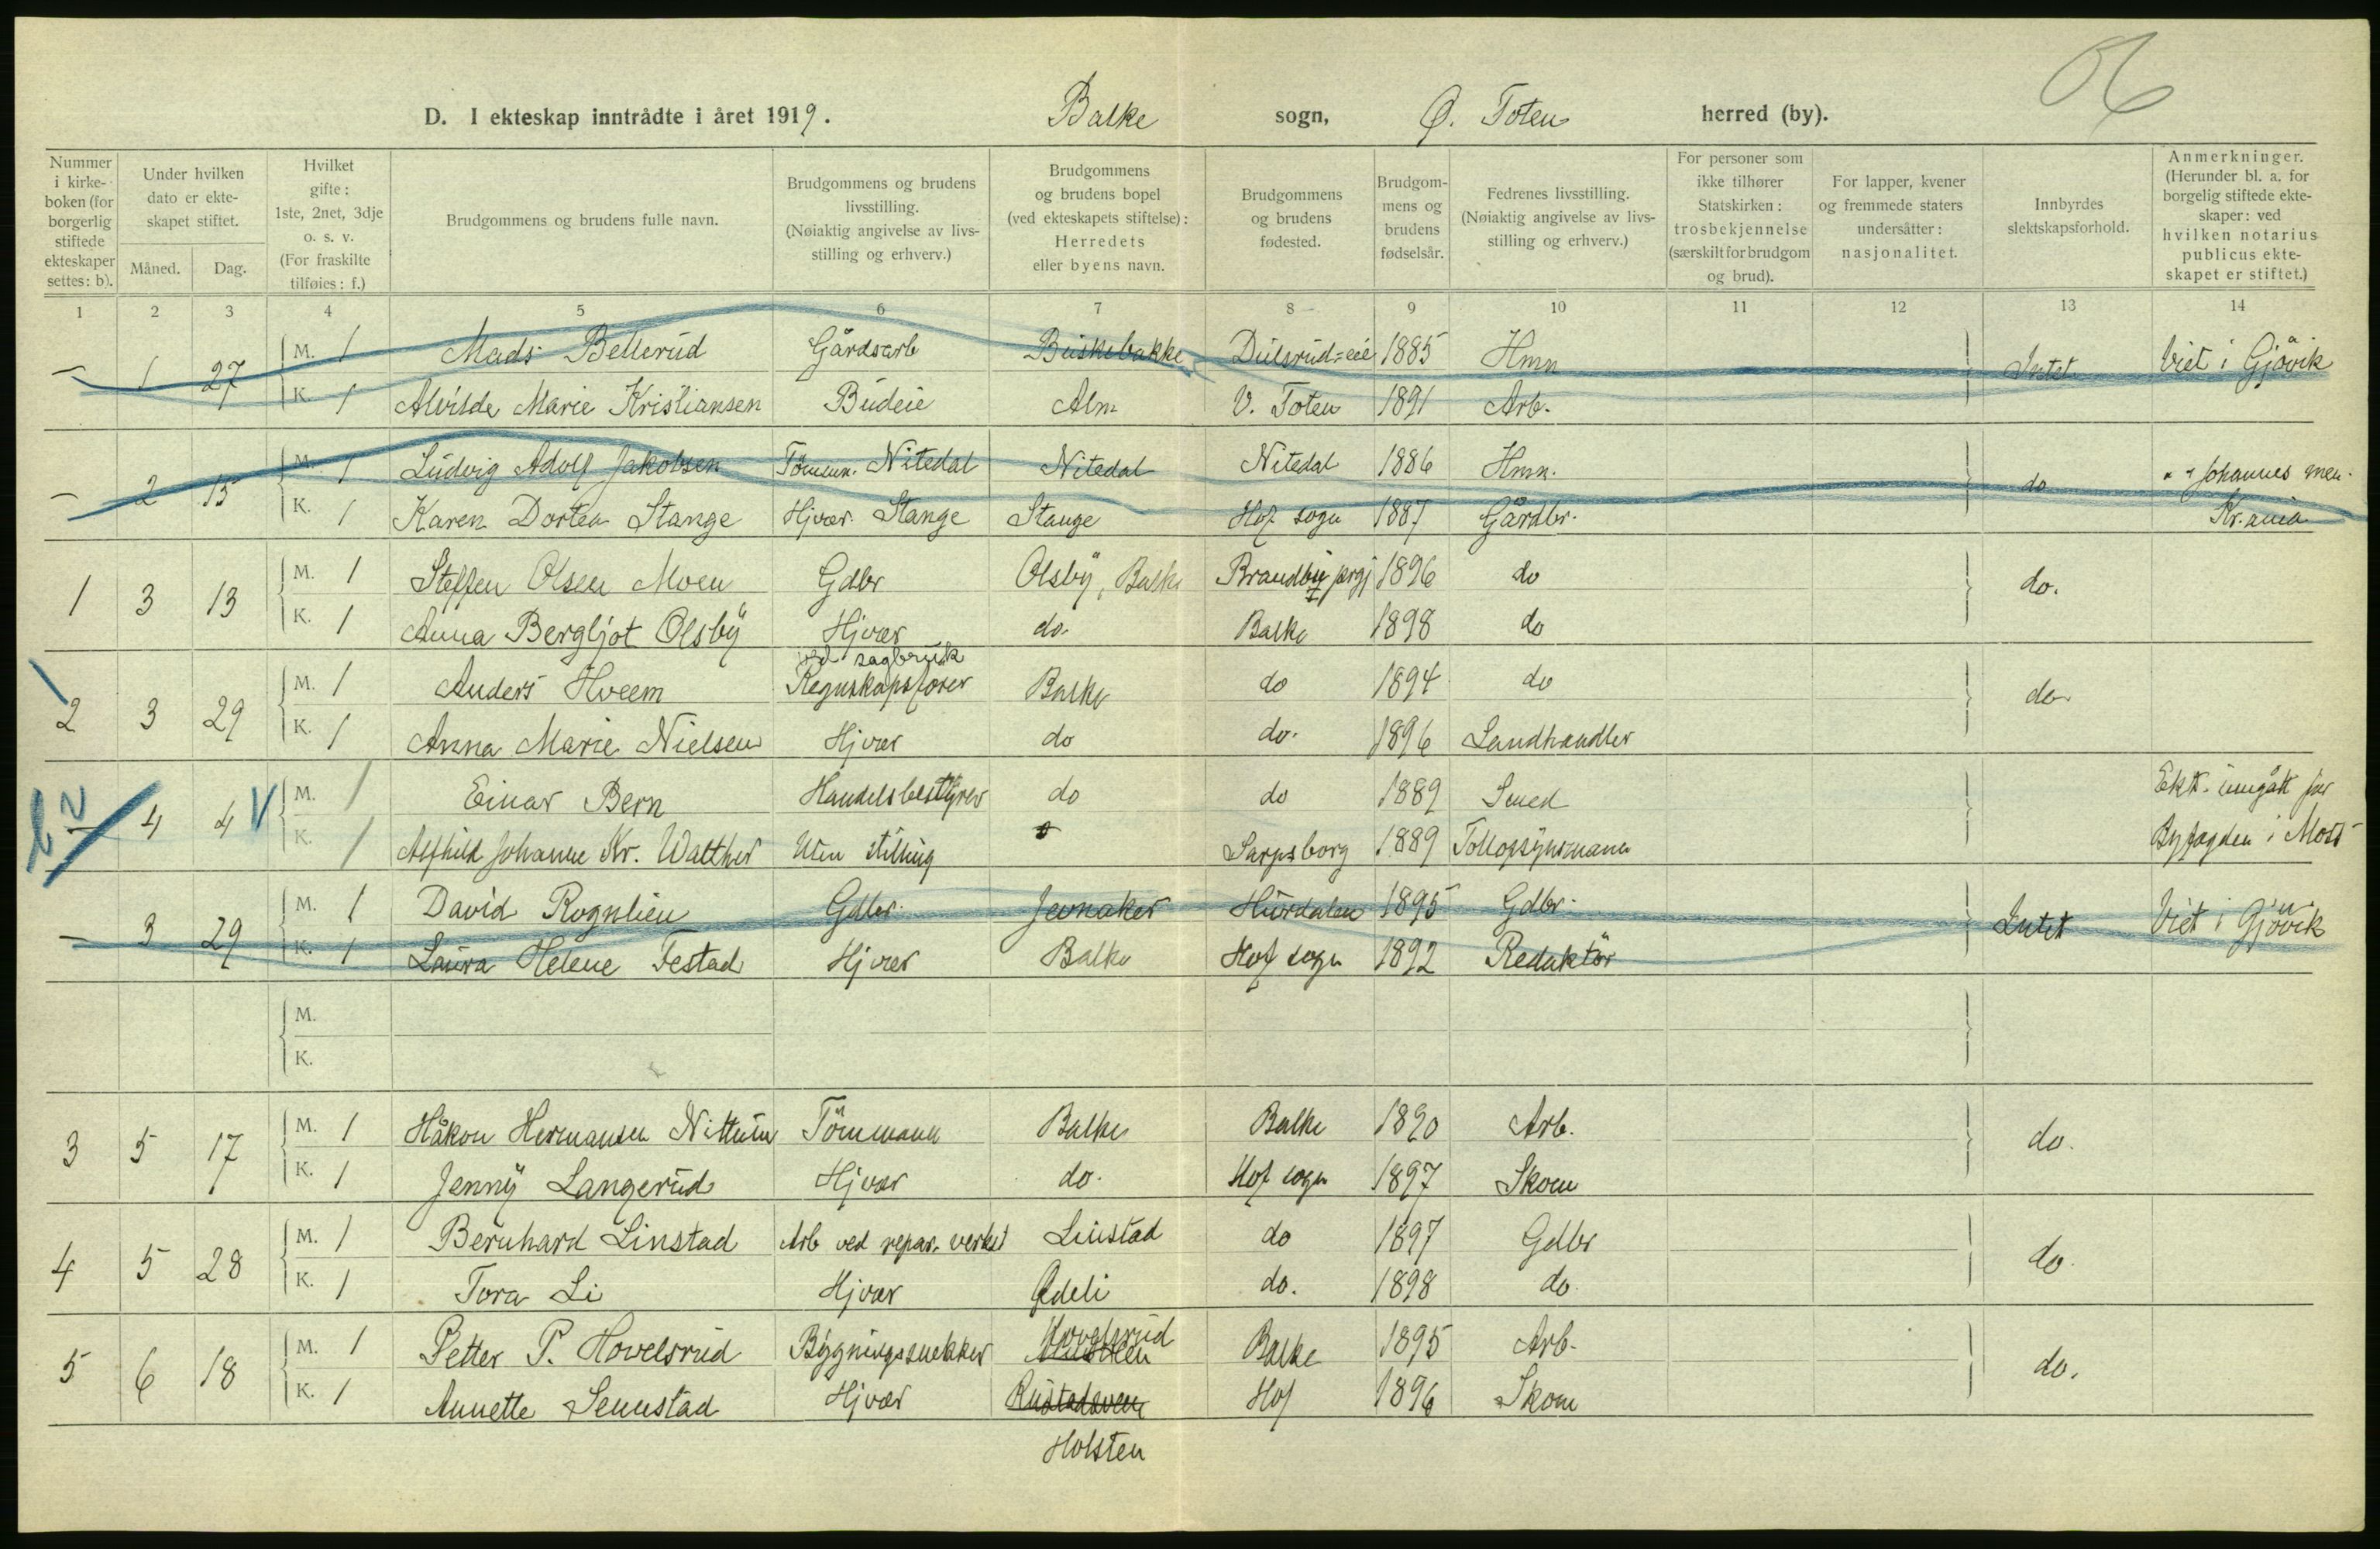 D. I ekteskap inntrådte i året 1919. Balke sogn, Ø. Toten herred (by).
Nummer i kirkeboken (for borgerlig stiftede ekteskaper settes: b).
Under hvilken dato er ekteskapet stiftet.
Måned. Dag.
Hvilket gifte: 1ste, 2net, 3dje o. s. v. (For fraskilte tilføies: f.)
Brudgommens og brudens fulle navn.
Brudgommens og brudens livsstilling. (Nøiaktig angivelse av livsstilling og erhverv.)
Brudgommens og brudens bopel (ved ekteskapets stiftelse): Herredets eller byens navn.
Brudgommens og brudens fødested.
Brudgommens og brudens fødselsår.
Fedrenes livsstilling. (Nøiaktig angivelse av livsstilling og erhverv.)
For personer som ikke tilhører Statskirken: trosbekjennelse (særskilt for brudgom og brud).
For lapper, kvener og fremmede staters undersåtter: nasjonalitet.
Innbyrdes slektskapsforhold.
Anmerkninger. (Herunder bl. a. for borgelig stiftede ekteskaper: ved hvilken notarius publicus ekteskapet er stiftet.)
1 2 3 4 5 6 7 8 9 10 11 12 13 14
— 1 27 M. 1 Mads Bellerud Gårdsarb Buskebakke Dulsrud=eie 1885 Hmn Intet Viet i Gjøvik
K. 1 Alvilde Marie Kristiansen Budeie Alm V. Toten 1891 Arb.
— 2 15 M. 1 Ludvig Adolf Jakobsen Tömm. Nitedal Nitedal Nitedal 1886 Hmn. do " " Johannes men.
K. 1 Karen Dortea Stange Hjvær. Stange Stange Hof sogn 1887 Gårdbr. Kr.ania
1 3 13 M. 1 Steffen Olsen Moen Gdbr Olsby, Balke Brandbu prgj 1896 do do.
K. 1 Anna Bergljot Olsby Hjvær do. Balke 1898 do
2 3 29 M. 1 Anders Hveem ved sagbruk Regnskapsforer Balke do 1894 do do
K. 1 Anna Marie Nielsen Hjvær do do. 1896 Landhandler
b 2 — 4 4 V M. 1 Einar Bern Handelsbestyrer do do 1889 Smed Ekt. inngått for
K. 1 Alfhild Johanne Kr. Walther Uten stilling Sarpsborg 1889 Tollopsynsmann Byfogden i Moss
— 3 29 M. 1 David Rognlien Gdbr. Jevnaker Hurdalen 1895 Gdbr. Intet Viet i Gjøvik
K. 1 Laura Helene Festad Hjvær Balke Hof sogn 1892 Redaktör
M.
K.
3 5 17 M. 1 Håkon Hermansen Nittum Tömmann Balke Balke 1890 Arb. do.
K. 1 Jenny Langerud Hjvær do. Hof sogn 1897 Skom
4 5 28 M. 1 Bernhard Linstad Arb ved repar. verkst Linstad do 1897 Gdbr do.
K. 1 Tora Li Hjvær Ødeli do. 1898 do
5 6 18 M. 1 Petter P. Hovelsrud Bygningssnekker Hovelsrud Balke 1895 Arb. do.
K. 1 Annette Sennstad Hjvær Rustadsveen Hof 1896 Skom
Holsten